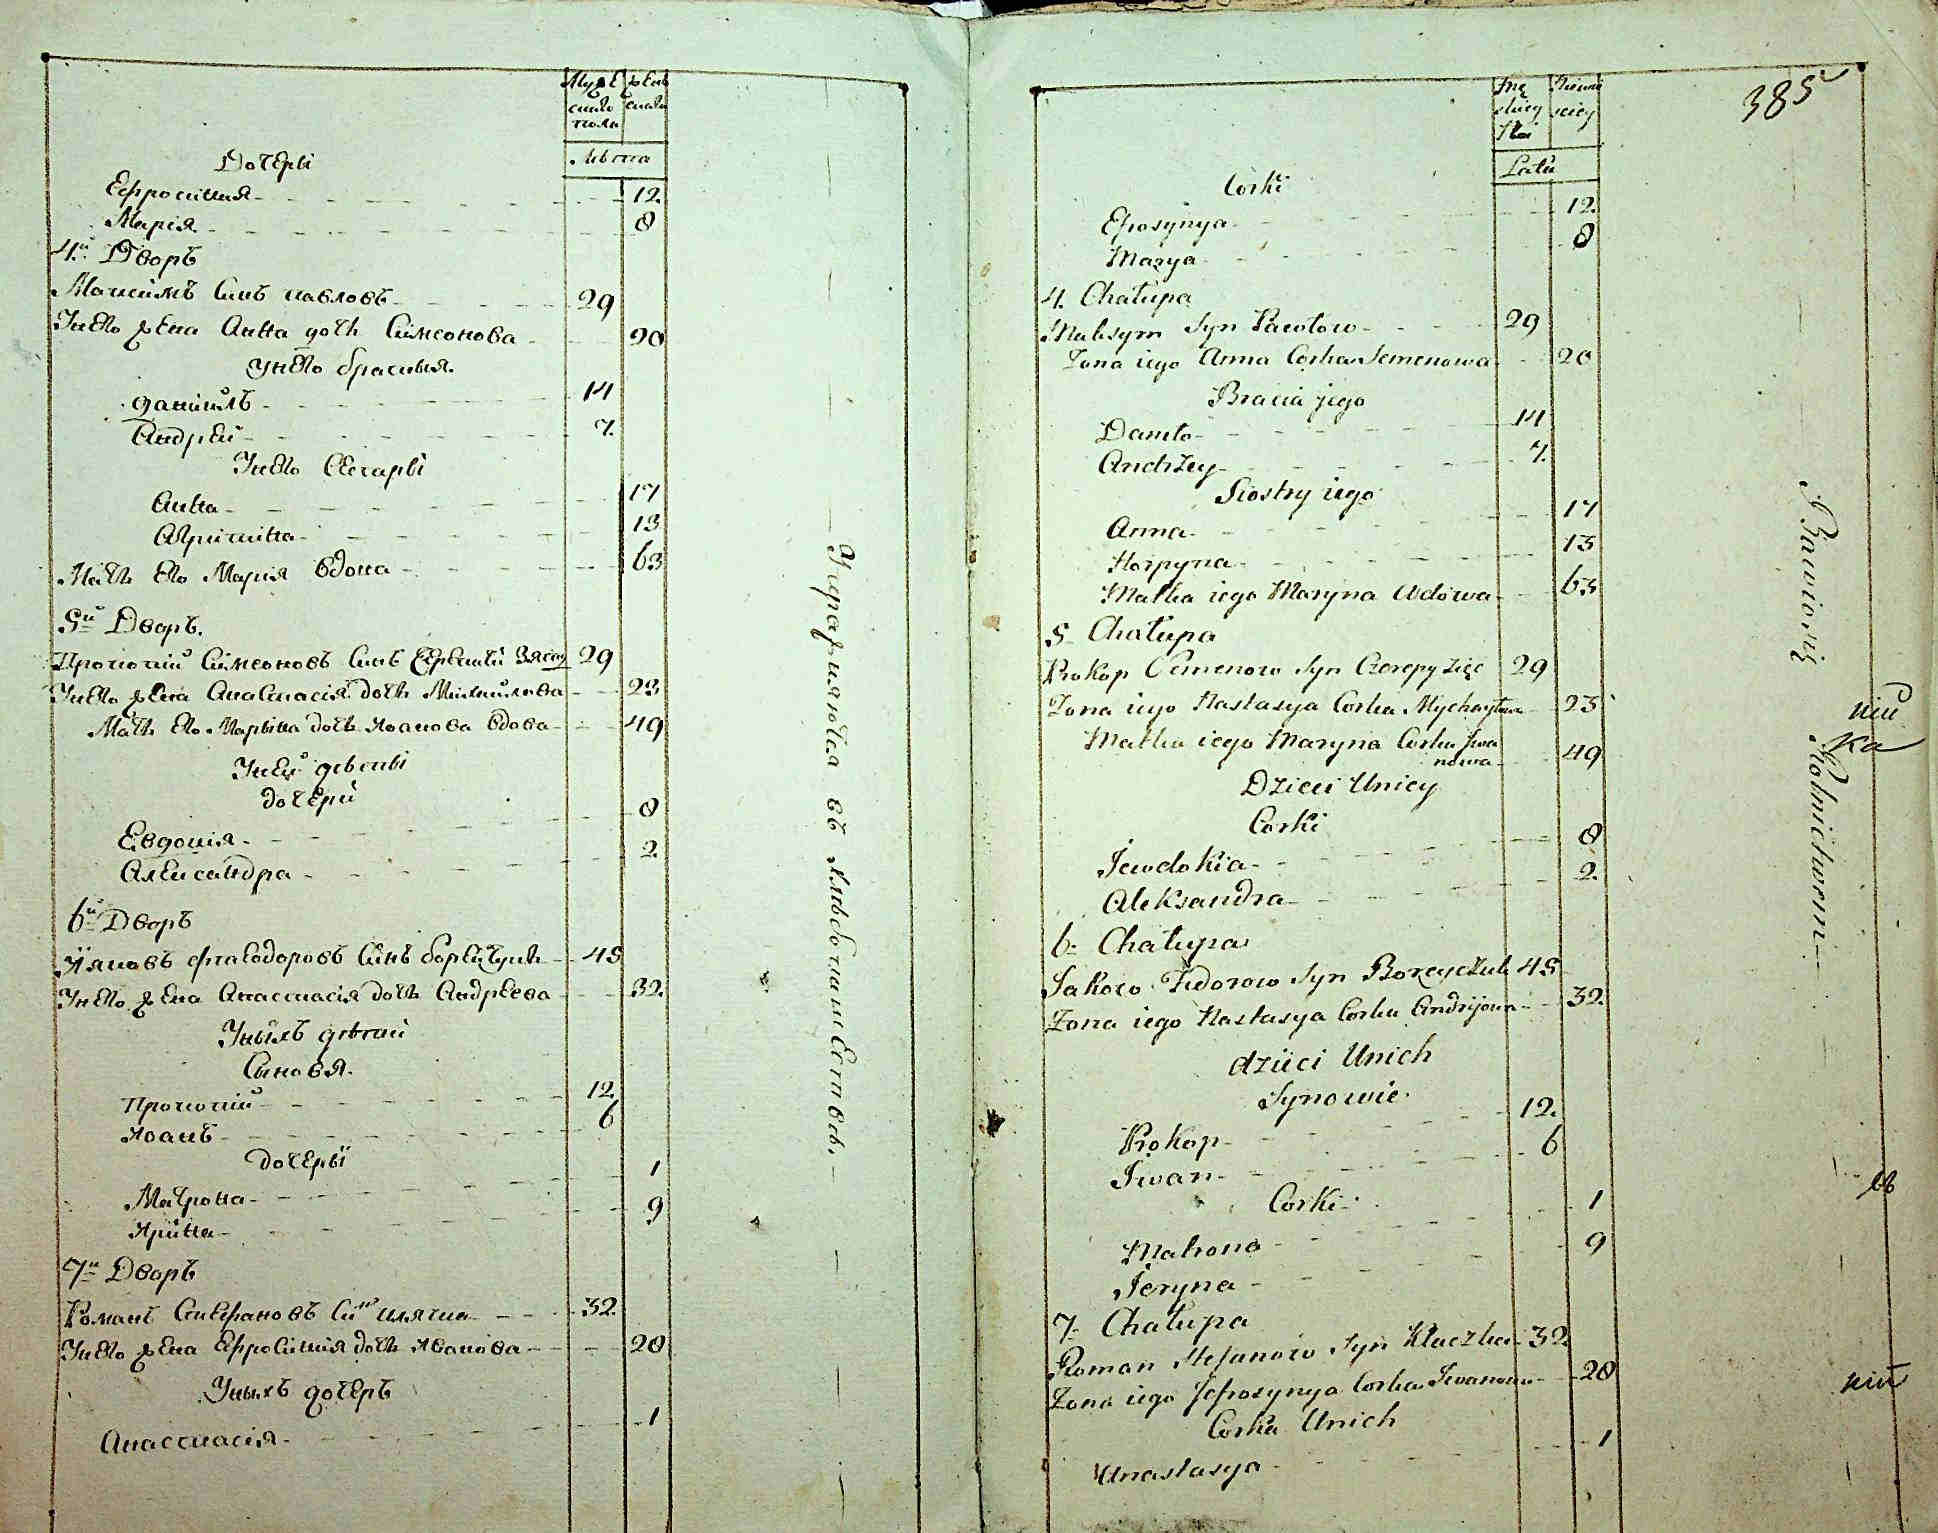 Дочерѣ
Ефросинія 12
Марія 8
4й Дворъ
Максимъ Синъ павловъ 29
У него жена Анна дочь Симеонова 20
у него братья
Даніилъ 14
Андрей 7
У него Сестры
Анна 17
Агрипина 13
Мать его Марія вдова 63
5й Дворъ
Прокопій Симеоновъ Синъ Зять 29
У него жена Анастасія дочь Михайлова 23
Мать его Марина дочь Иоанова вдова 49
дочери
Евдокія 8
Александра 2
6й Дворъ
Яковъ Феодоровъ Синъ 45
У него жена Анастасія дочь Андреева 32
У нихъ дѣтей
Синовя
Прокопій 12
Иоанъ 6
дочерѣ
Матрона 1
Ирина 9
7й Дворъ
Романъ Стефановъ 32
У него жена Ефросинія дочь Иванова 20
У нихъ дочерь
Анастасія 1
Упражняются въ хлѣбопашествѣ
385
Męzkiey Płci
Żenskiey
Lata
Corki
Efrosynya 12
Marya 8
4. Chałupa
Maksym Syn Pawłow 29
Zona iego Anna Corka Semenowa 20
Bracia jego
Daniło 14
Andrzey 7
Siostry iego
Anna 17
Horpyna 13
Matka iego Maryna Wdowa 63
5 Chałupa
Prokop Semenow Syn Czerepy Zięć 29
Zona iego Nastasya Corka Mychayłowa 23
Matka iego Maryna Corka Jwanowa 49
Dzieci Unicy
Corki
Jewdokia 8
Aleksandra 2
6 Chałupa
Jakow Fedorow Syn Borzyczuk 45
Zona iego Nastasya Corka Andrijowa 32
dzieci Unich
Synowie
Prokop 12
Jwan 6
Corki
Matrona 1
Jeryna 9
7 Chałupa
Roman Stefanow Syn Kluczka 32
Zona iego Jefrosynya Corka Jwanowa 20
Corka Unich
Anastasya 1
Bawią się Rolnictwem